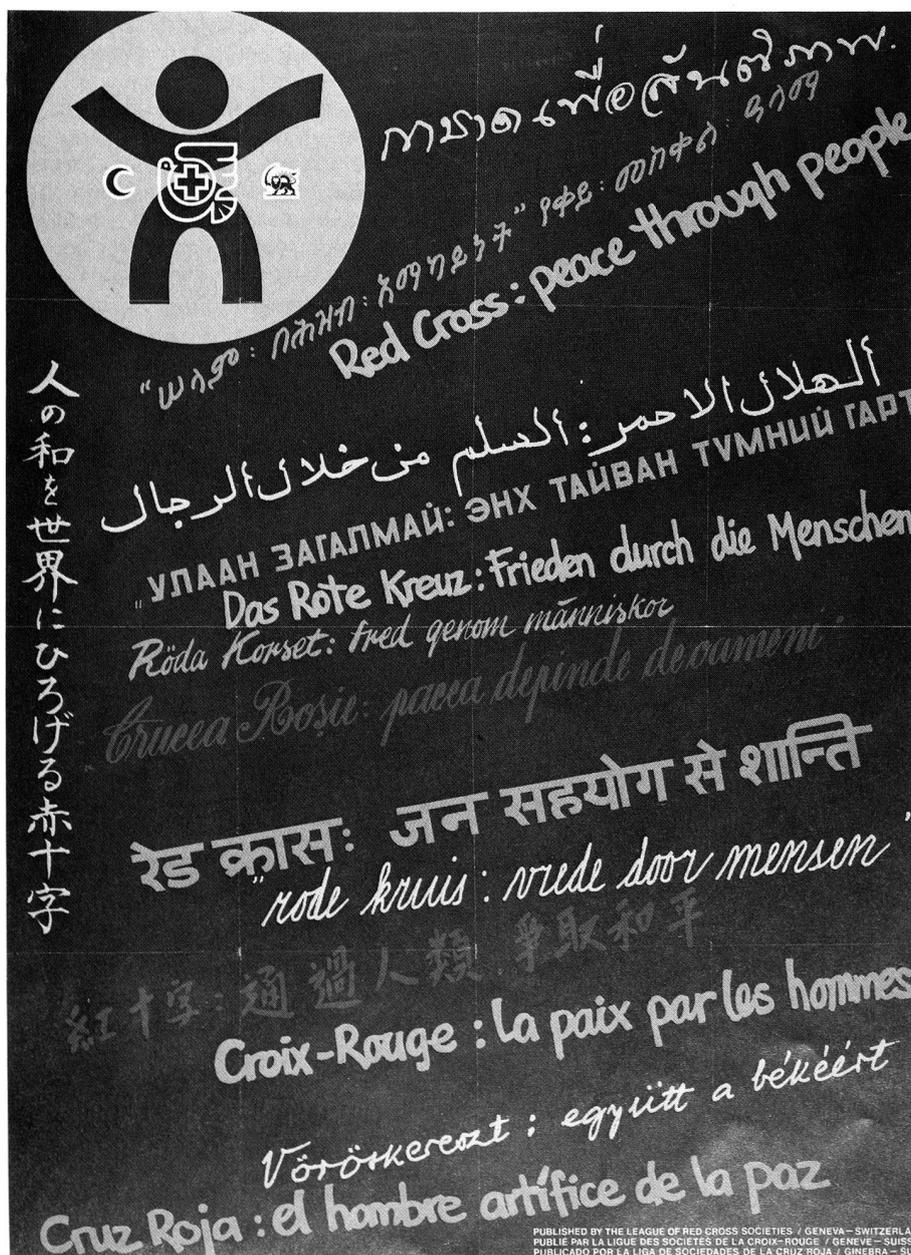 กาชาดเพื่อสันติภาพ.
"ሠላም: በሕዝብ: አማካይነት" የቀይ: መስቀል: ዓላማ
Red Cross: peace through people
الهلال الاحمر: السلم من خلال الرجال
"УЛААН ЗАГАЛМАЙ: ЭНХ ТАЙВАН ТУМНИЙ ГАРТ
Das Rote Kreuz: Frieden durch die Menschen
Röda Korset: fred genom människor
Crucea Roșie: pacea depinde de oameni
रेड क्रास: जन सहयोग से शान्ति
"rode kruis: vrede door mensen"
紅十字:通過人類.爭取和平
Croix-Rouge: la paix par les hommes
Vöröskereszt: együtt a békéért
Cruz Roja: el hombre artífice de la paz
人の和を世界にひろげる赤十字
PUBLISHED BY THE LEAGUE OF RED CROSS SOCIETIES / GENEVA – SWITZERLA
PUBLIÉ PAR LA LIGUE DES SOCIÉTÉS DE LA CROIX-ROUGE / GENÈVE – SUISS
PUBLICADO POR LA LIGA DE SOCIEDADES DE LA CRUZ ROJA / GINEBRA –